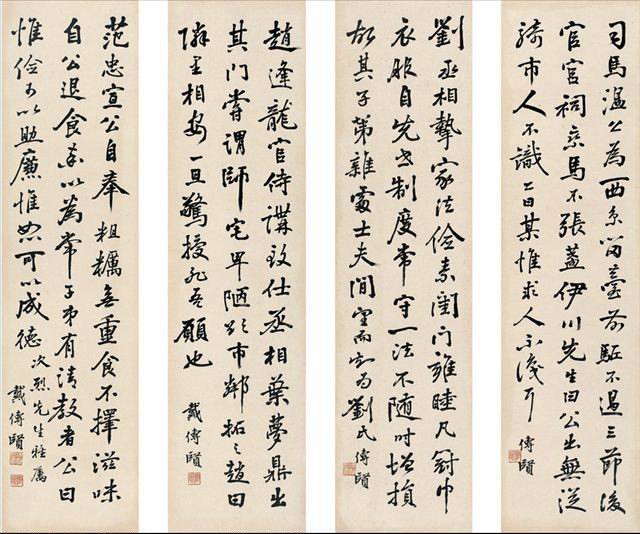 司馬溫公為西京留臺前駈不過三節後
官宮祠乘馬不張蓋伊川先生曰公出無從
騎市人不識公曰某惟求人不識耳
傳賢
劉丞相摯家法儉素閨門雍睦凡冠巾
衣服自先世制度常守一法不隨時增損
故其子弟雜處士夫間望而知為劉氏
傳賢
趙逢龍官侍講致仕丞相葉夢鼎出
其門嘗謂師宅卑陋欲市鄰拓之趙曰
鄰里相安一旦驚擾非吾願也
戴傳賢
范忠宣公自奉粗糲無重食不擇滋味
自公退食率以為常子弟有請教者公曰
惟儉可以助廉惟恕可以成德
次烈先生雅屬
戴傳賢